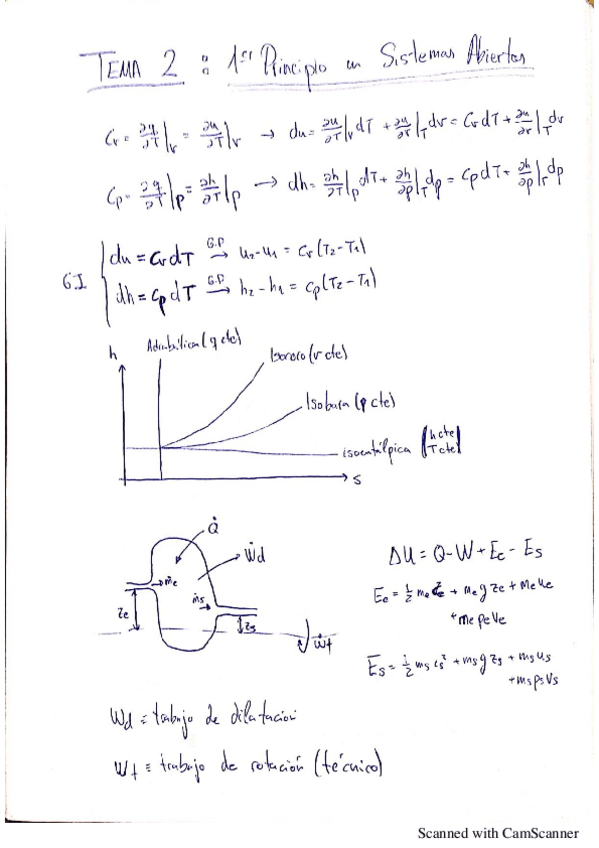 TEMA 2 : 1er Principio en Sistemas Abiertos
Cv = ∂q/∂T|v = ∂u/∂T|v → du = ∂u/∂T|v dT + ∂u/∂v|T dv = Cv dT + ∂u/∂v|T dv
Cp = ∂q/∂T|p = ∂h/∂T|p → dh = ∂h/∂T|p dT + ∂h/∂p|T dp = Cp dT + ∂h/∂p|T dp
G.I
du = Cv dT G.P→ u2 - u1 = Cv (T2 - T1)
dh = Cp dT G.P→ h2 - h1 = Cp (T2 - T1)
h
Adiabática (q cte)
Isocoro (v cte)
Isobara (p cte)
isoentálpica (h cte
T cte)
s
Q̇
Ẇd
ṁe
ṁs
Ze
Zs
Ẇt
ΔU = Q - W + Ee - Es
Ee = 1/2 me ce² + me g ze + me ue
+ me pe ve
Es = 1/2 ms cs² + ms g zs + ms us
+ ms ps vs
Wd ≡ trabajo de dilatación
Wt ≡ trabajo de rotación (técnico)
Scanned with CamScanner